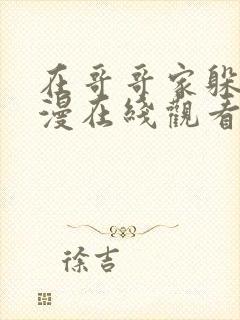 在哥哥家躲
漫在线觀看
徐吉